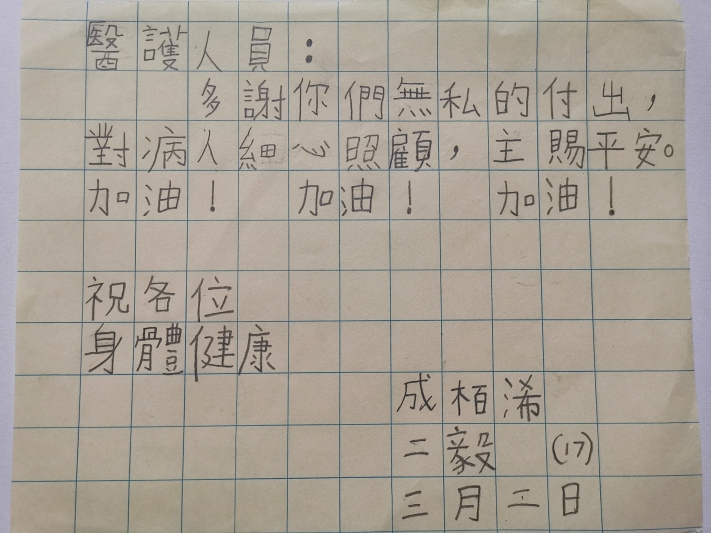 醫護人員：
多謝你們無私的付出，
對病人細心照顧，主賜平安。
加油！加油！加油！
祝各位
身體健康
成栢浠
二毅 (17)
三月二日